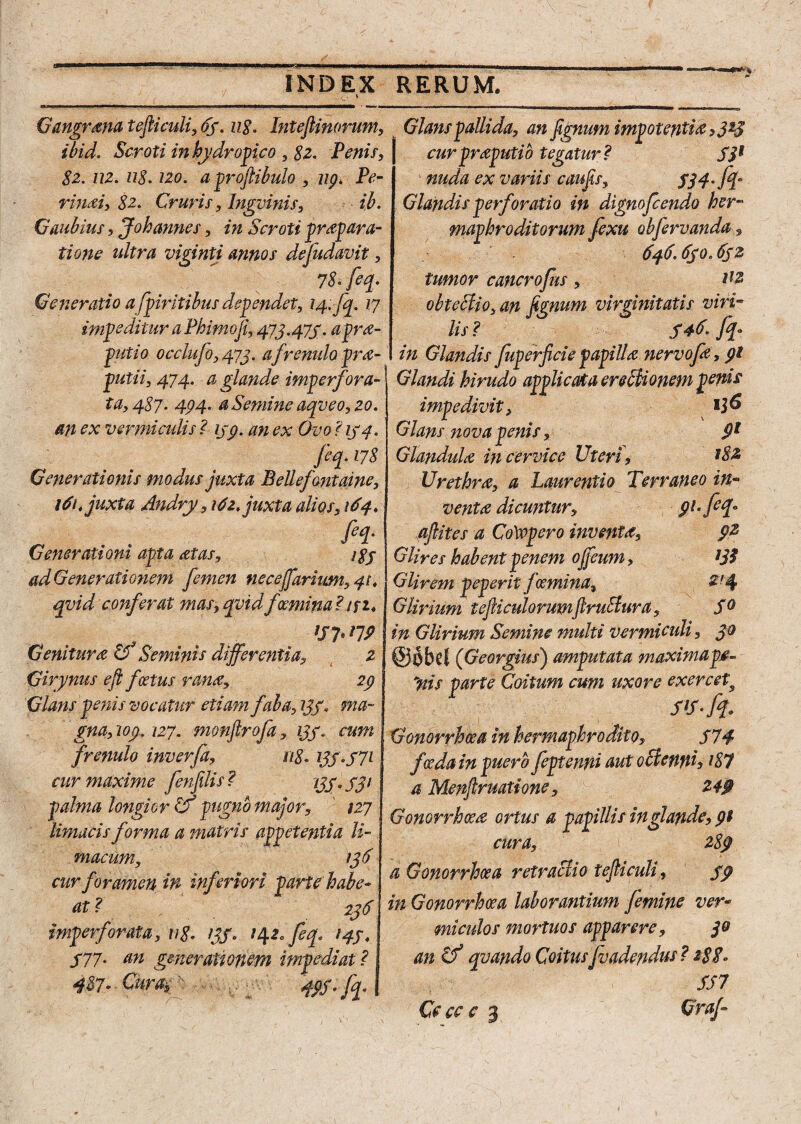 INDEX RERUM.
Gangræna teſticuli, 65. 118. Inteſtinorum,
ibid. Scroti in hydropico, 82. Penis,
82. 112. 118. 120. a proſtibulo, 119. Pe-
rinæi, 82. Cruris, Ingvinis, ib.
Gaubius, Johannes, in Scroti præpara-
tione ultra viginti annos deſudavit,
78. ſeq.
Generatio a ſpiritibus dependet, 14. ſq. 17
impeditur a Phimoſi, 473. 475. a præ-
putio occluſo, 473. a frenulo præ-
putii, 474. a glande imperfora-
ta, 487. 494. a Semine aqveo, 20.
an ex vermiculis? 159. an ex Ovo? 154.
ſeq. 178
Generationis modus juxta Bellefontaine,
161. juxta Andry, 162. juxta alios, 164.
ſeq.
Generationi apta ætas, 185
ad Generationem ſemen neceſſarium, 41.
qvid conferat mas, qvid fœmina? 152.
157. 179
Genituræ & Seminis differentia, 2
Girynus eſt fœtus ranæ, 29
Glans penis vocatur etiam faba, 135. ma-
gna, 109. 127. monſtroſa, 135. cum
frenulo inverſa, 118. 135. 571
cur maxime ſenſilis? 135. 531
palma longior & pugno major, 127
limacis forma a matris appetentia li-
macum, 136
cur foramen in inferiori parte habe-
at? 236
imperforata, 118. 135. 142. ſeq. 145.
577. an generationem impediat?
487. Cura, 495. ſq.
Glans pallida, an ſignum impotentiæ, 323
cur præputio tegatur? 531
nuda ex variis cauſis, 534. ſq.
Glandis perforatio in dignoſcendo her-
maphroditorum ſexu obſervanda,
646. 650. 652
tumor cancroſus, 112
obtectio, an ſignum virginitatis viri-
lis? 546. ſq.
in Glandis ſuperficie papillæ nervoſæ, 91
Glandi hirudo applicata erectionem penis
impedivit, 136
Glans nova penis, 91
Glandulæ in cervice Uteri, 182
Urethræ, a Laurentio Terraneo in-
ventæ dicuntur, 91. ſeq.
aſtites a Cowpero inventæ, 92
Glires habent penem oſſeum, 133
Glirem peperit fœmina, 214
Glirium teſticulorum ſtructura, 50
in Glirium Semine multi vermiculi, 30
Göbel (Georgius) amputata maxima pe-
nis parte Coitum cum uxore exercet,
515. ſq.
Gonorrhœa in hermaphrodito, 574
fœda in puero ſeptenni aut octenni, 187
a Menſtruatione, 249
Gonorrhœæ ortus a papillis in glande, 91
cura, 289
a Gonorrhœa retractio teſticuli, 59
in Gonorrhœa laborantium ſemine ver-
miculos mortuos apparere, 30
an & qvando Coitus ſvadendus? 288.
557
Cc cc c 3 Graſ-